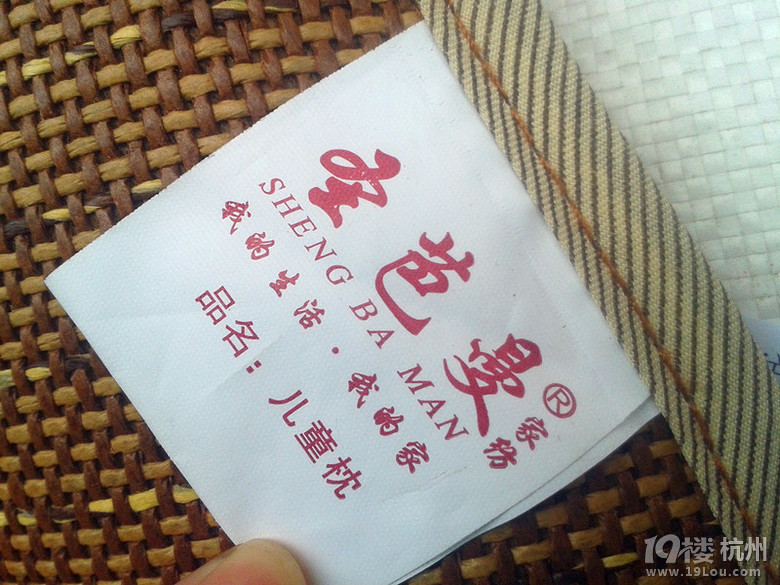 圣芭曼®家纺
SHENG BA MAN
我的生活·我的家
品名：儿童枕
19楼 杭州
www.19Lou.com